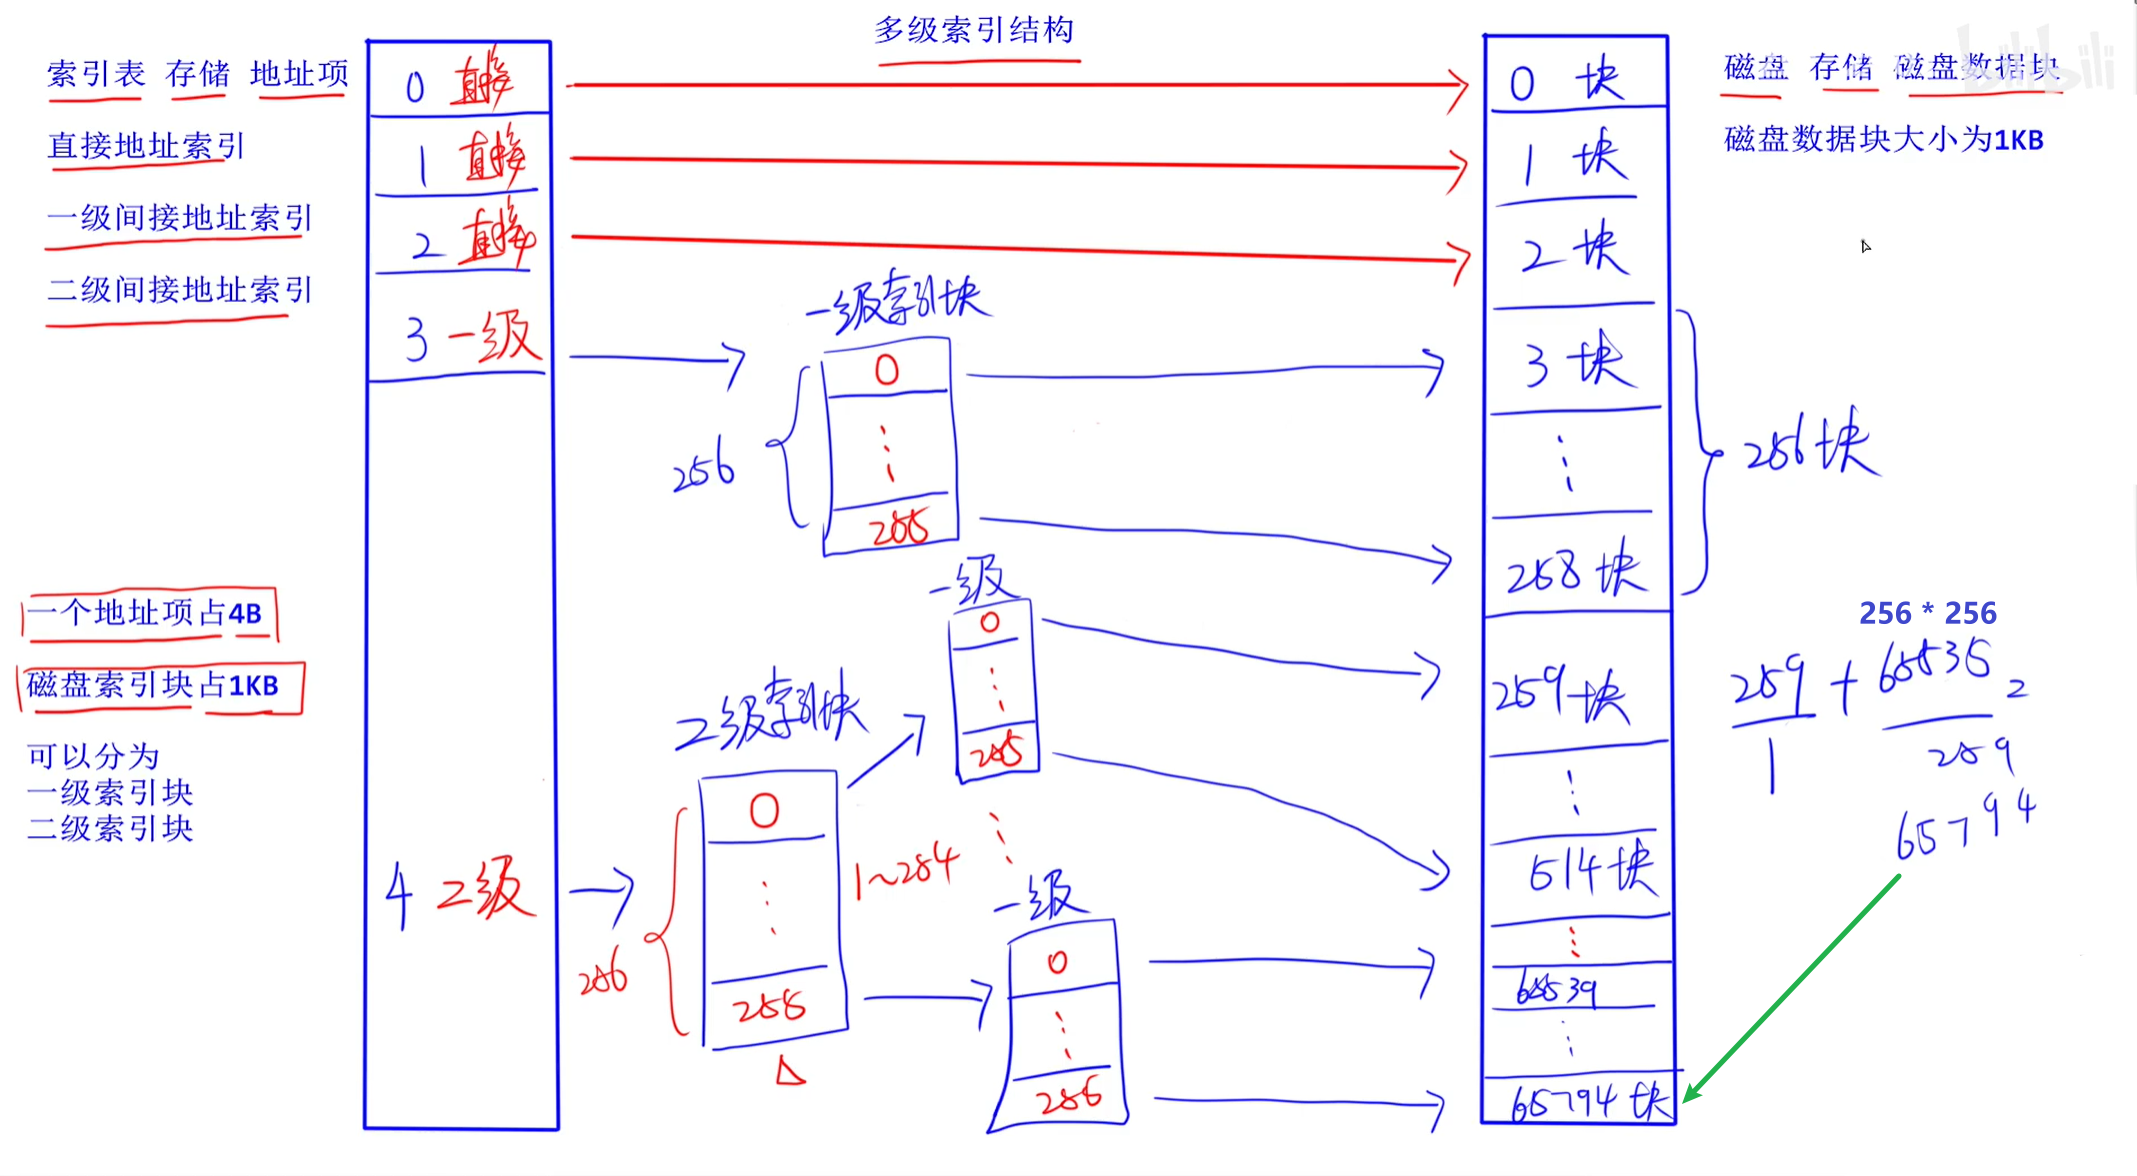 多级索引结构
索引表 存储 地址项
直接地址索引
一级间接地址索引
二级间接地址索引
一个地址项占4B
磁盘索引块占1KB
可以分为
一级索引块
二级索引块
0 直接
1 直接
2 直接
3 一级
4 二级
一级索引块
0
256
255
一级
0
255
二级索引块
0
256
1~254
255
一级
0
255
0 块
1 块
2 块
3 块
258 块
259 块
514 块
65539
65794 块
bilibili
磁盘 存储 磁盘数据块
磁盘数据块大小为1KB
256块
256 * 256
259 + 65535
1
2
259
65794